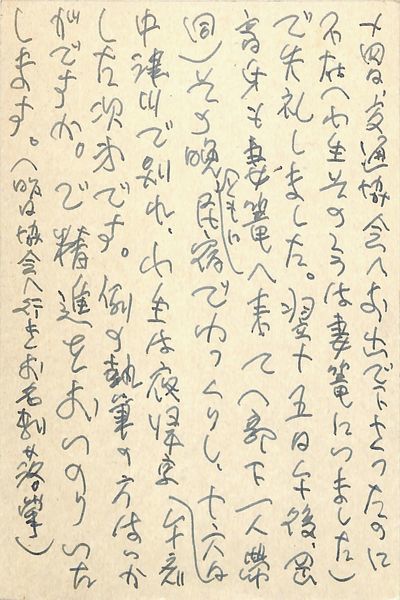 十四日、交通協会へお出で下さったのに
不在(小生そのころは妻籠にいました)
で失礼しました。翌十五日午後、
君も妻籠へ来て(部下一人帯
同)その晩民宿でゆっくりし、十六日
中津川で別れ、小生は夜帰京
した次第です。例の執筆の方はいか
がですか。ご精進をおいのりいた
します。(昨日協会へ行きお名刺